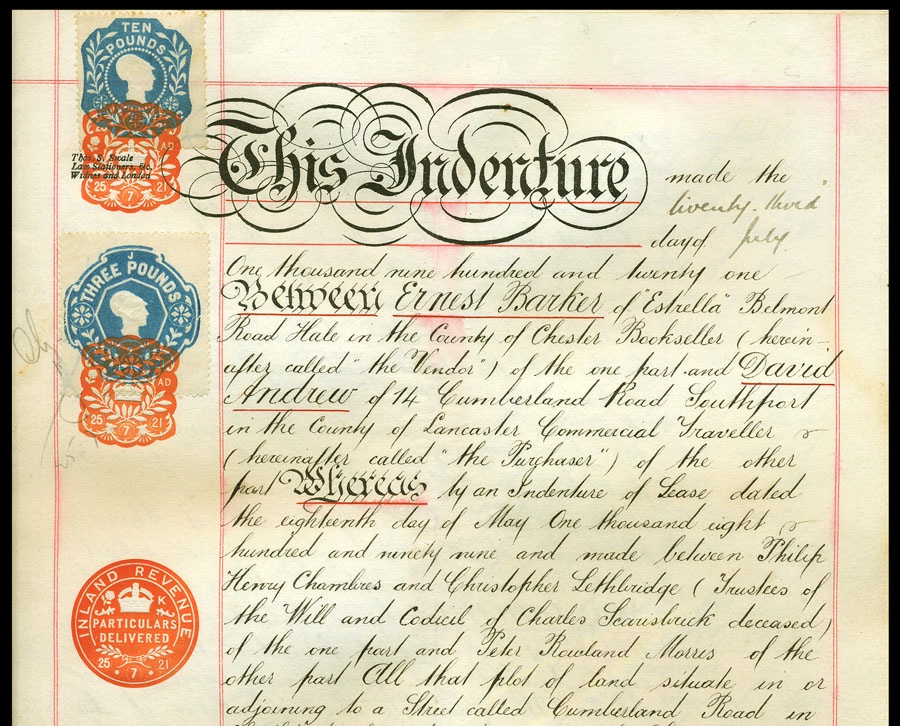 TEN
POUNDS
AD
Thos. S. Swale
Law Stationers, &c.,
Widnes and London
25 7 21
This Indenture made the
twenty-third
day of July
One thousand nine hundred and twenty one
Between Ernest Barker of "Estrella" Belmont
Road Hale in the County of Chester Bookseller (herein-
after called "the Vendor") of the one part and David
Andrew of 14 Cumberland Road Southport
in the County of Lancaster Commercial Traveller
(hereinafter called "the Purchaser") of the other
part Whereas by an Indenture of Lease dated
the eighteenth day of May One thousand eight
hundred and ninety nine and made between Philip
Henry Chambres and Christopher Lethbridge (Trustees of
the Will and Codicil of Charles Scarisbrick deceased)
of the one part and Peter Rowland Morris of the
other part All that plot of land situate in or
adjoining to a Street called Cumberland Road in
J
THREE POUNDS
AD
25 7 21
INLAND REVENUE
K
PARTICULARS
DELIVERED
25 · 7 · 21